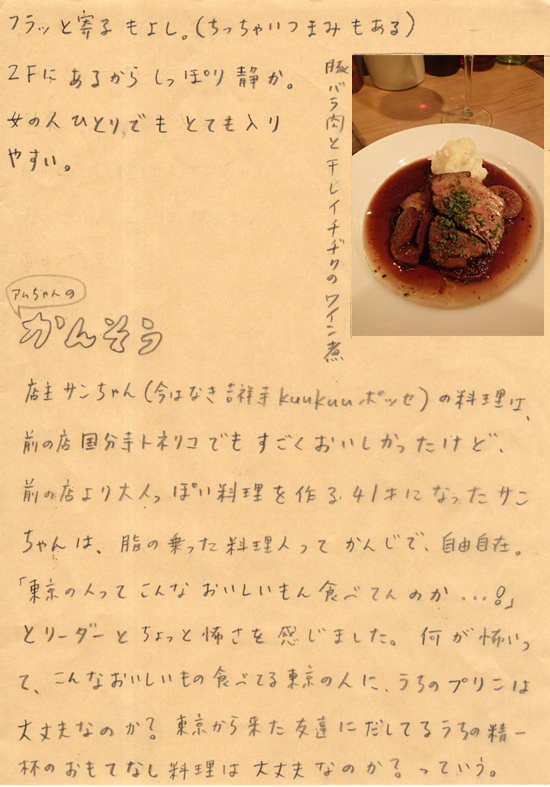 フラッと寄るもよし。(ちっちゃいつまみもある)
2Fにあるから しっぽり 静か。
女の人 ひとりでも とても入り
やすい。
豚バラ肉と干しイチヂクのワイン煮
アムちゃんの
かんそう
店主サンちゃん(今はなき吉祥寺kuukuuポッセ)の料理は、
前の店国分寺トネリコでも すごくおいしかったけど、
前の店より大人っぽい料理を作る。41才になったサン
ちゃんは、脂の乗った料理人って かんじで、自由自在。
「東京の人って こんな おいしいもん 食べてんのか…!」
とリーダーと ちょっと怖さを 感じました。 何が怖いっ
て、こんなおいしいもの食べてる東京の人に、うちのプリンは
大丈夫なのか? 東京から来た友達にだしてるうちの精一
杯のおもてなし料理は 大丈夫なのか? っていう。